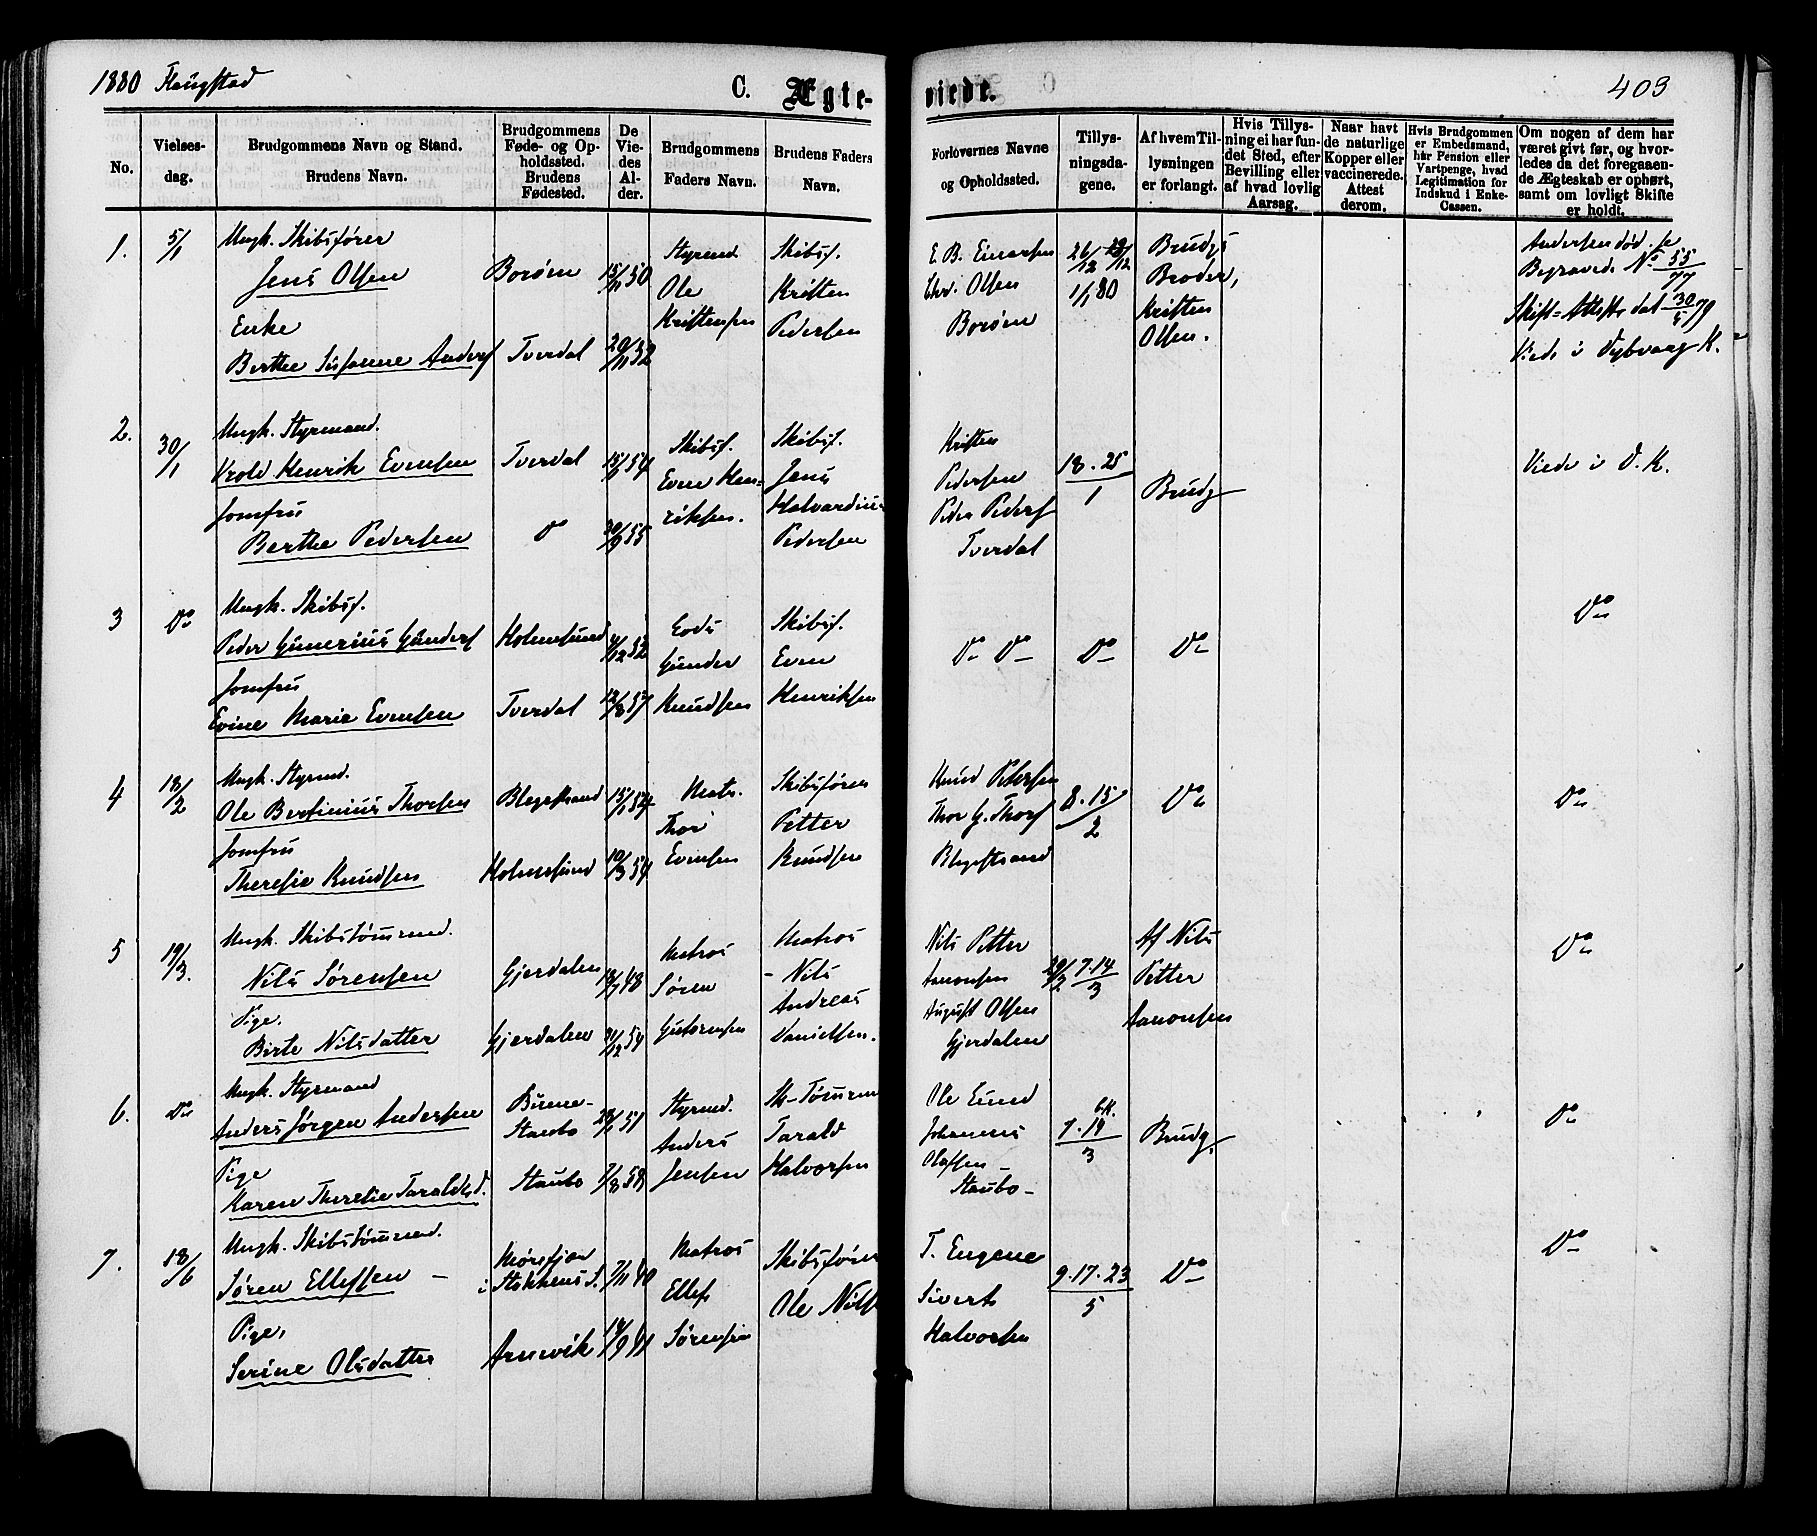 1880 Flangstad
C. Ægteviede.
403
No.
Vielsesdag.
Brudgommens Navn og Stand.
Brudens Navn.
Brudgommens Føde- og Opholdssted.
Brudens Fødested.
De Viedes Alder.
Brudgommens Faders Navn.
Brudens Faders Navn.
Forlovernes Navne og Opholdssted.
Tillysningsdagene.
Af hvem Tillysningen er forlangt.
Hvis Tillysning ei har fundet Sted, efter Bevilling eller af hvad lovlig Aarsag.
Naar havt de naturlige Kopper eller vaccinerede. Attest derom.
Hvis Brudgommen er Embedsmand, har Pension eller Vartpenge, hvad Legitimation for Indskud i Enke-Cassen.
Om nogen af dem har været givt før, og hvorledes da det foregaaende Ægteskab er ophørt, samt om lovligt Skifte er holdt.
1. 5/1
Ungk. Skibsfører
Jens Olsen
Enke
Berthe Susanne Anders
Borøen 15/11 50
Tverdal 20/11 32
Styrmd.
Ole
Kristensen
Skibsf.
Kristen
Pedersen
E. B. Einarsen
Chr. Olsen
Borøen
26/12 28/12
1/1 80
Brudgs
Broder,
Kristen
Olsen.
Andersen død, se
Begravede No 55/77
Skift-Attest dat 30/5 79
Viede i Dybvaag K.
2. 30/1
Ungk. Styrmand.
Vrold Henrik Evensen
Jomfru
Berthe Pedersen
Tverdal 54
Do 30/9 55
Skibsf.
Even Henriksen.
Skibsf.
Jens
Halvardius
Pedersen
Kristen
Pedersen
Peder Peders
Tverdal
18. 25/1
Brudg
Viede i D. K.
3 Do
Ungk. Skibsf.
Peder Gunerius Gunders
Jomfru
Evine Marie Evensen
Holmesund 4/12 52
Tverdal 12/8 57
Lods
Gunder
Knudsen
Skibsf.
Even
Henriksen
Do Do
Do
Do
Do
4 18/2
Ungk. Styrmd.
Ole Bertinius Thorsen
Jomfru
Theresie Knudsen
Blegestrand 15/1 54
Holmesund 10/3 54
Matr.
Thor
Evensen
Skibsfører
Petter
Knudsen
Knud Petersen
Thor G. Thors
Blegestrand
8. 15/2
Do
Do
5 19/3.
Ungk. Skibstømmmd.
Nils Sørensen
Pige.
Birte Nilsdatter
Gjerdalen 18/7 48
Gjerdalen 21/12 54
Matros
Søren
Guttormsen
Matros
- Nils
Andreas
Danielsen.
Nils Petter
Aanonsen
August Olsen
Gjerdalen
29/2 7. 14/3
Af Nils
Petter
Aanonsen
Do
6. Do
Ungk. Styrmand
Anders Jørgen Andersen
Pige
Karen Theresie Taraldsd.
Staubo 51
Staubo 7/8 58
Styrmd.
Anders
Jensen
Sk-Tømmm
Tarald
Halvorsen
Ole Eund
Johannes
Olassen -
Staubo -
7. 14/3
Brudg.
Do
7. 18/6
Ungk. Skibstømmmd.
Søren Ellefsen -
Pige,
Serine Olsdatter
Mørefjær
i Stokkens S. 7/11 40
Arnevik 14/9 41
Matros
Ellef
Sørensen
Skibsfører
Ole Nils
T. Eugene
Sivert
Halvorsen
9. 17. 23/5
Do
Do